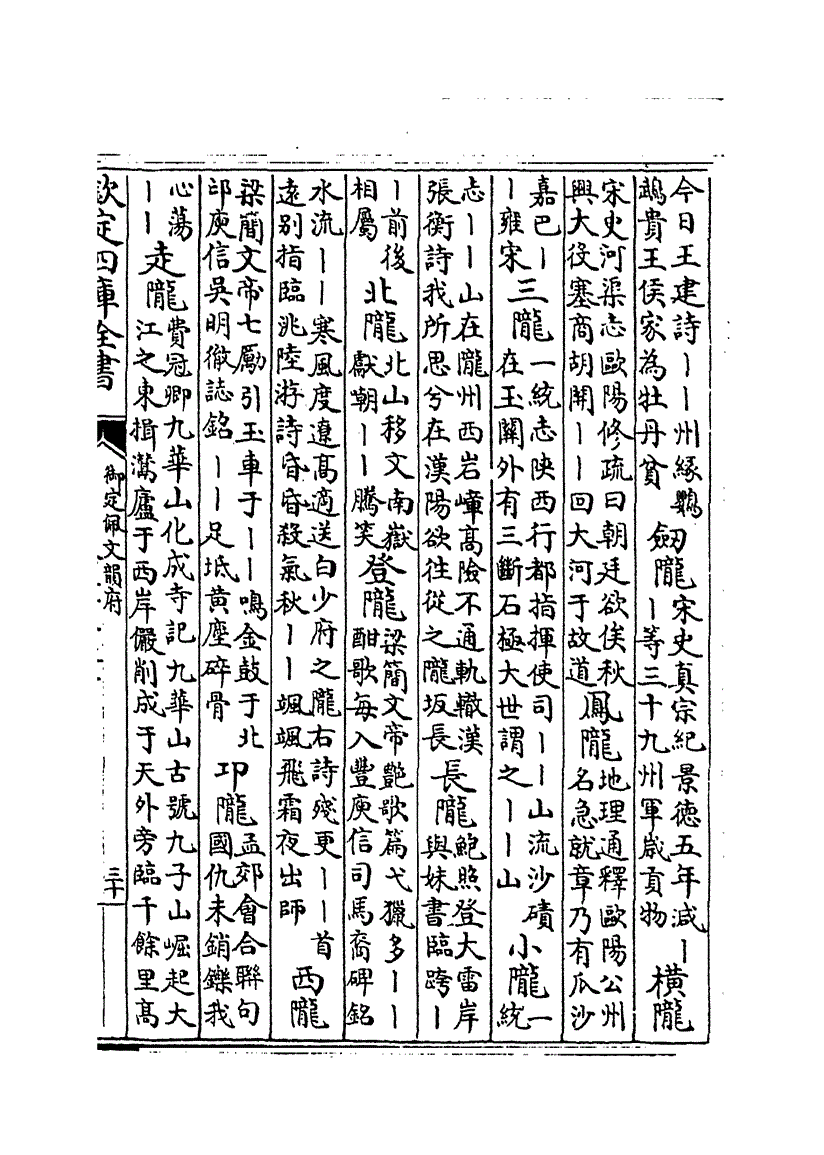 今日王建詩︱︱州縁鸚
鵡貴王侯家為牡丹貧
劒隴
宋史真宗紀景徳五年減︱
︱等三十九州軍嵗貢物
橫隴
宋史河渠志歐陽修疏曰朝廷欲俟秋
興大役塞商胡開︱︱回大河于故道
鳳隴
地理通釋歐陽公州
名急就章乃有瓜沙
嘉巴︱
︱雍宋
三隴
一統志陜西行都指揮使司︱︱山流沙磧
在玉關外有三斷石極大世謂之︱︱山
小隴
一
統
志︱︱山在隴州西岩嶂髙險不通軌轍漢
張衡詩我所思兮在漢陽欲往從之隴坂長
長隴
鮑照登大雷岸
與妹書臨跨︱
︱前後
相屬
北隴
北山移文南嶽
獻嘲︱︱騰笑
登隴
梁簡文帝艶歌篇弋獵多︱︱
酣歌毎入豐庾信司馬裔碑銘
水流︱︱寒風度遼髙適送白少府之隴右詩殘更︱︱首
逺别指臨洮陸游詩昏昏殺氣秋︱︱颯颯飛霜夜出師
西隴
梁簡文帝七勵引玉車于︱︱鳴金鼓于北
邙庾信吳明徹誌銘︱︱足坻黄塵碎骨
卭隴
孟郊會合聯句
國仇未銷鑠我
心蕩
︱︱
走隴
費冠卿九華山化成寺記九華山古號九子山崛起大
江之東揖灊廬于西岸儼削成于天外旁臨千餘里髙
欽定四庫全書
御定佩文韻府
三十